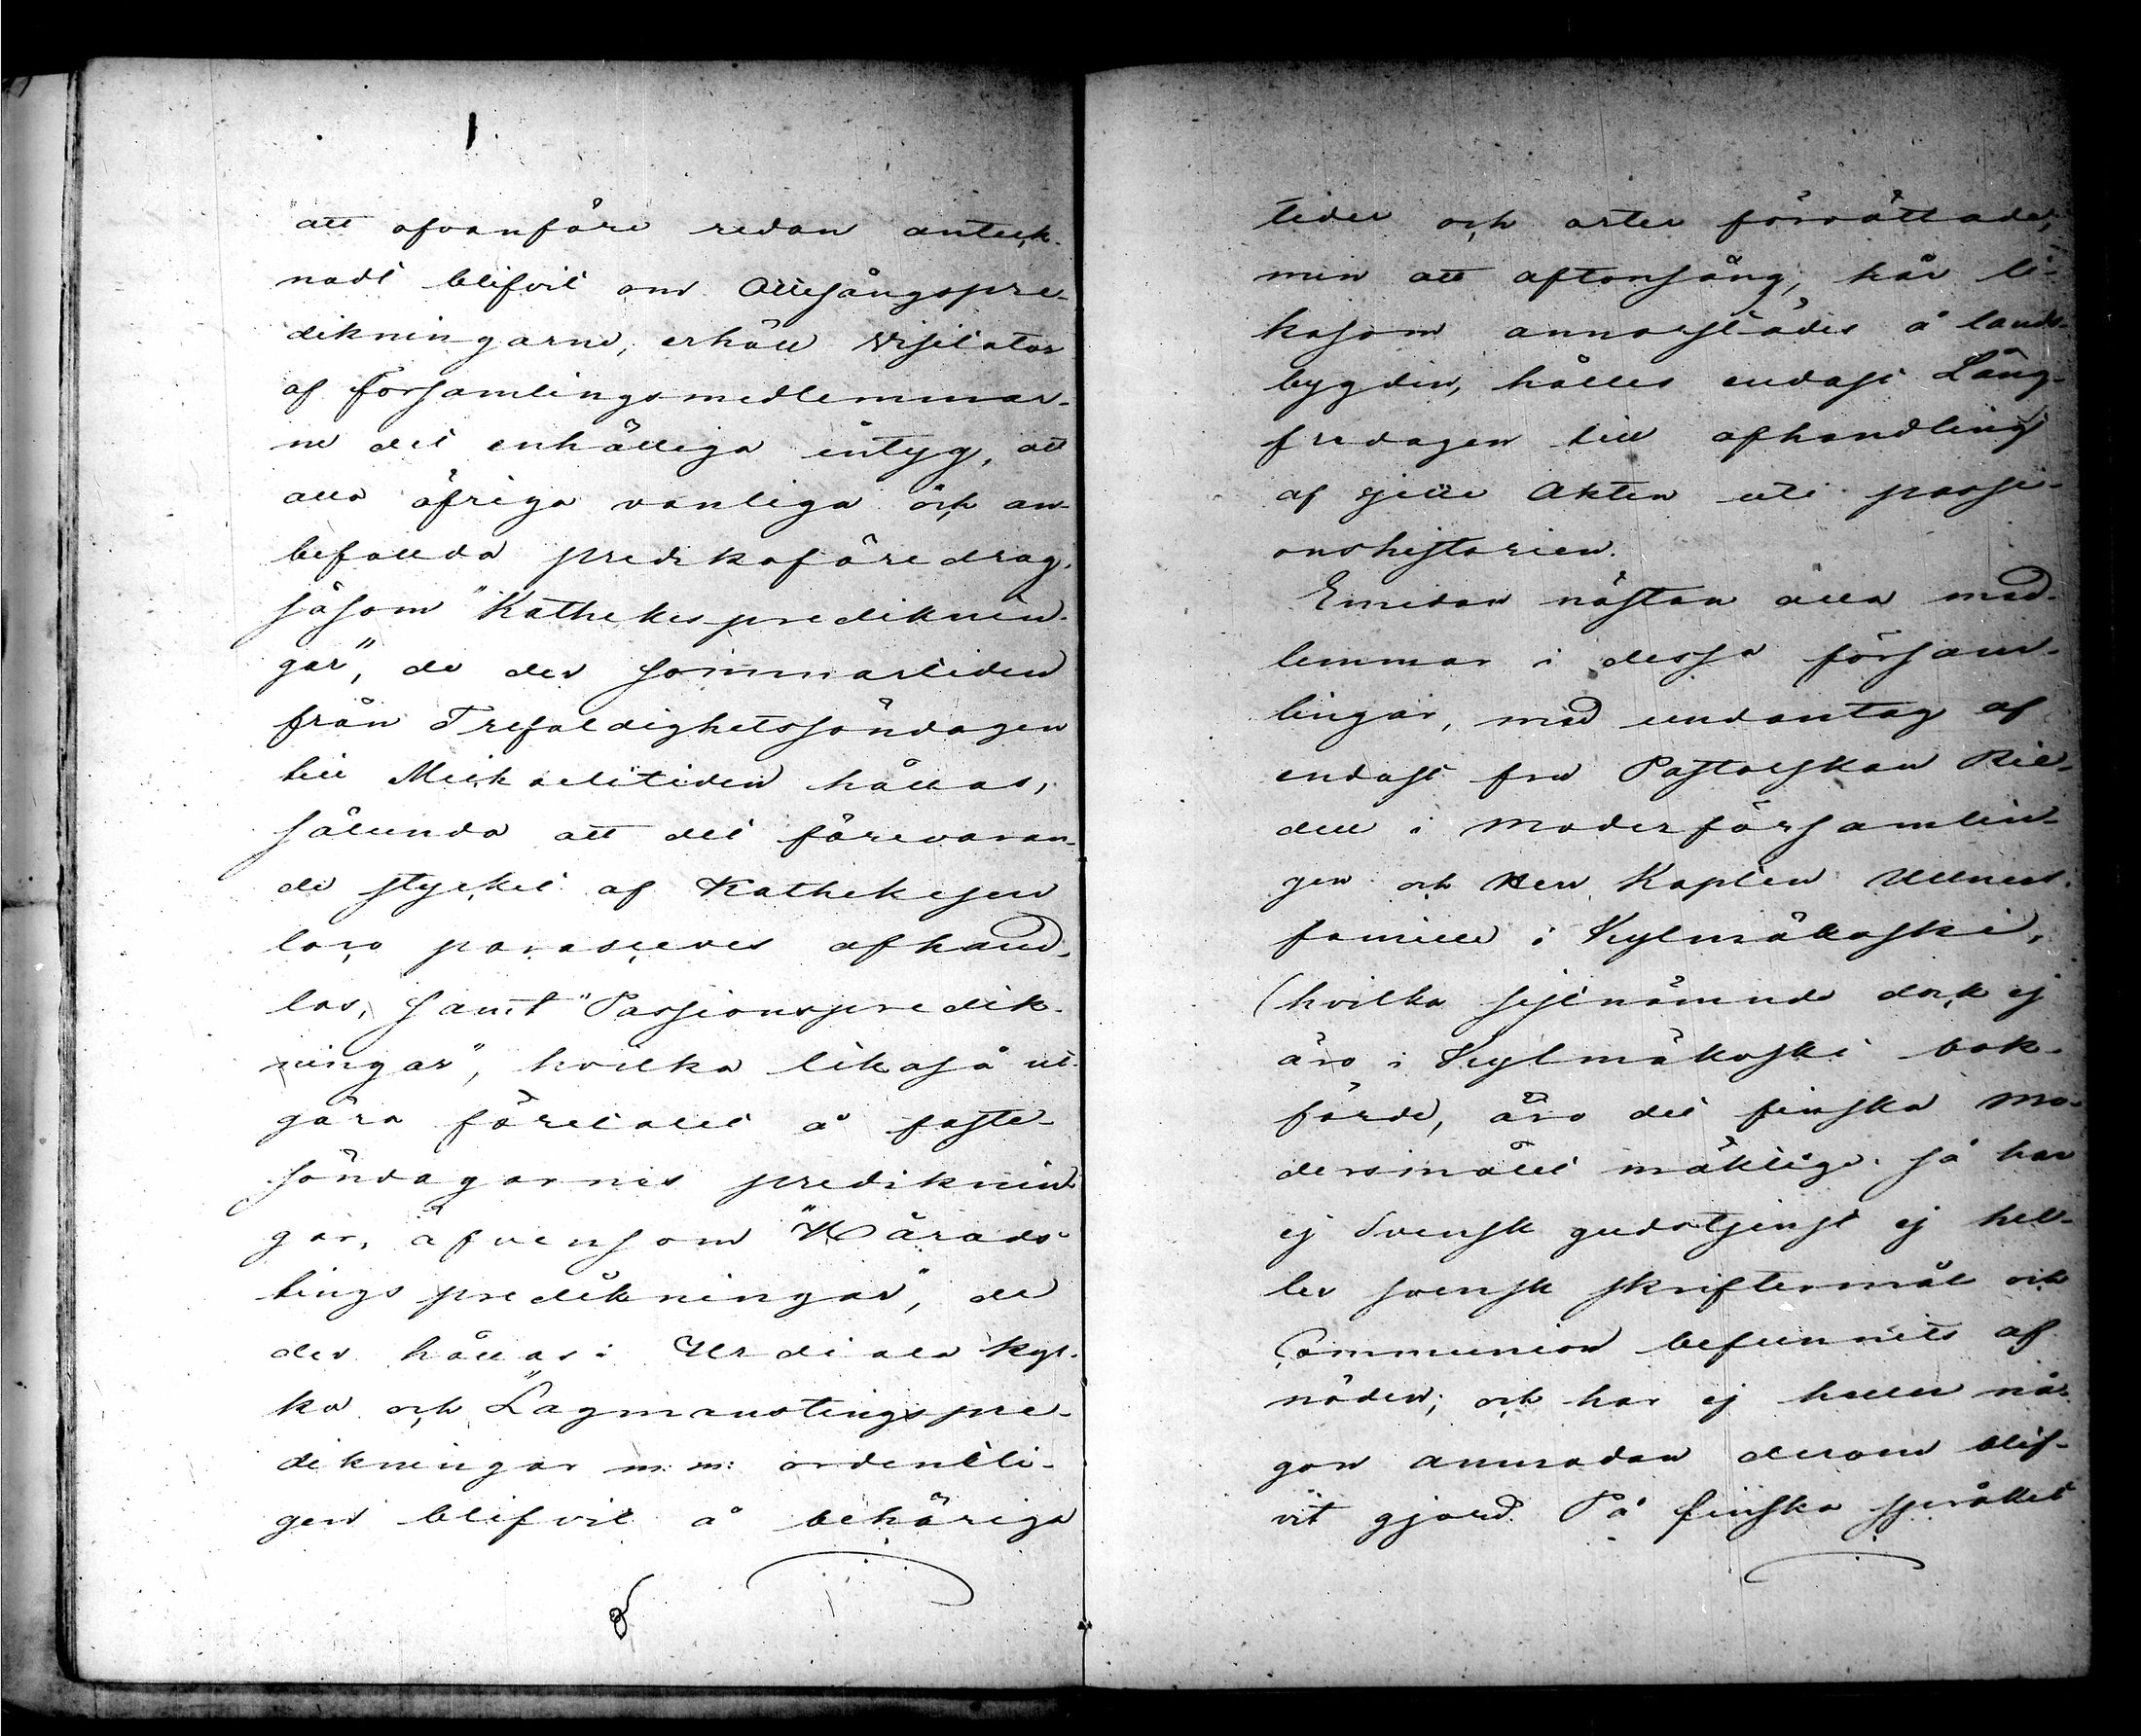 att ofvanföre redan anteck-
nadt blifvit om Ottesångspre-
dikningarne, erhöll Visitator
af Församlingsmedlemmar-
ne det enhälliga intyg, att
alla öfriga vanliga och an-
befallda predikoföredrag,
såsom "Kathekesprediknin-
gar", de der sommartiden
från Trefaldighetssöndagen
till Mickaelitiden hållas,
sålunda att det förevaran-
de stycket af Kathekesen
loco parasceves afhand-
las, samt "Passionspredik-
ningar", hvilka likaså ut-
göra företalet å faste-
söndagarnes prediknin-
gar, äfvensom "Härads-
tings predikningar", de
der hållas i Urdiala kyr-
ka och "Lagmanstings pre-
dikningar m: m: ordentli-
gen blifvit å behöriga
tider och orter förrättade,
men att aftonsång, här li-
kasom annorstädes å lands-
bygden, hålles endast Lång-
fredagen till afhandling
af sjette Akten uti passi-
onshistorien.
Emedan nästan alla med-
lemmar i dessa försam-
lingar, med undantag af
endast fru Pastorskan Rie-
dell i Moderförsamlin-
gen och Herr Kaplen
familie i Kylmäkoski,
(hvilka sistnämnde dock ej
äro i Kylmäkoski bok-
förde, äro det finska mo-
dersmålet mäktige. så har
ej Svensk gudstjenst ej hel-
ler svensk skriftermål och
Communion befunnits af
nöden; och har ej heller nå-
gon anmodan derom blif-
vit gjord. På finska språket